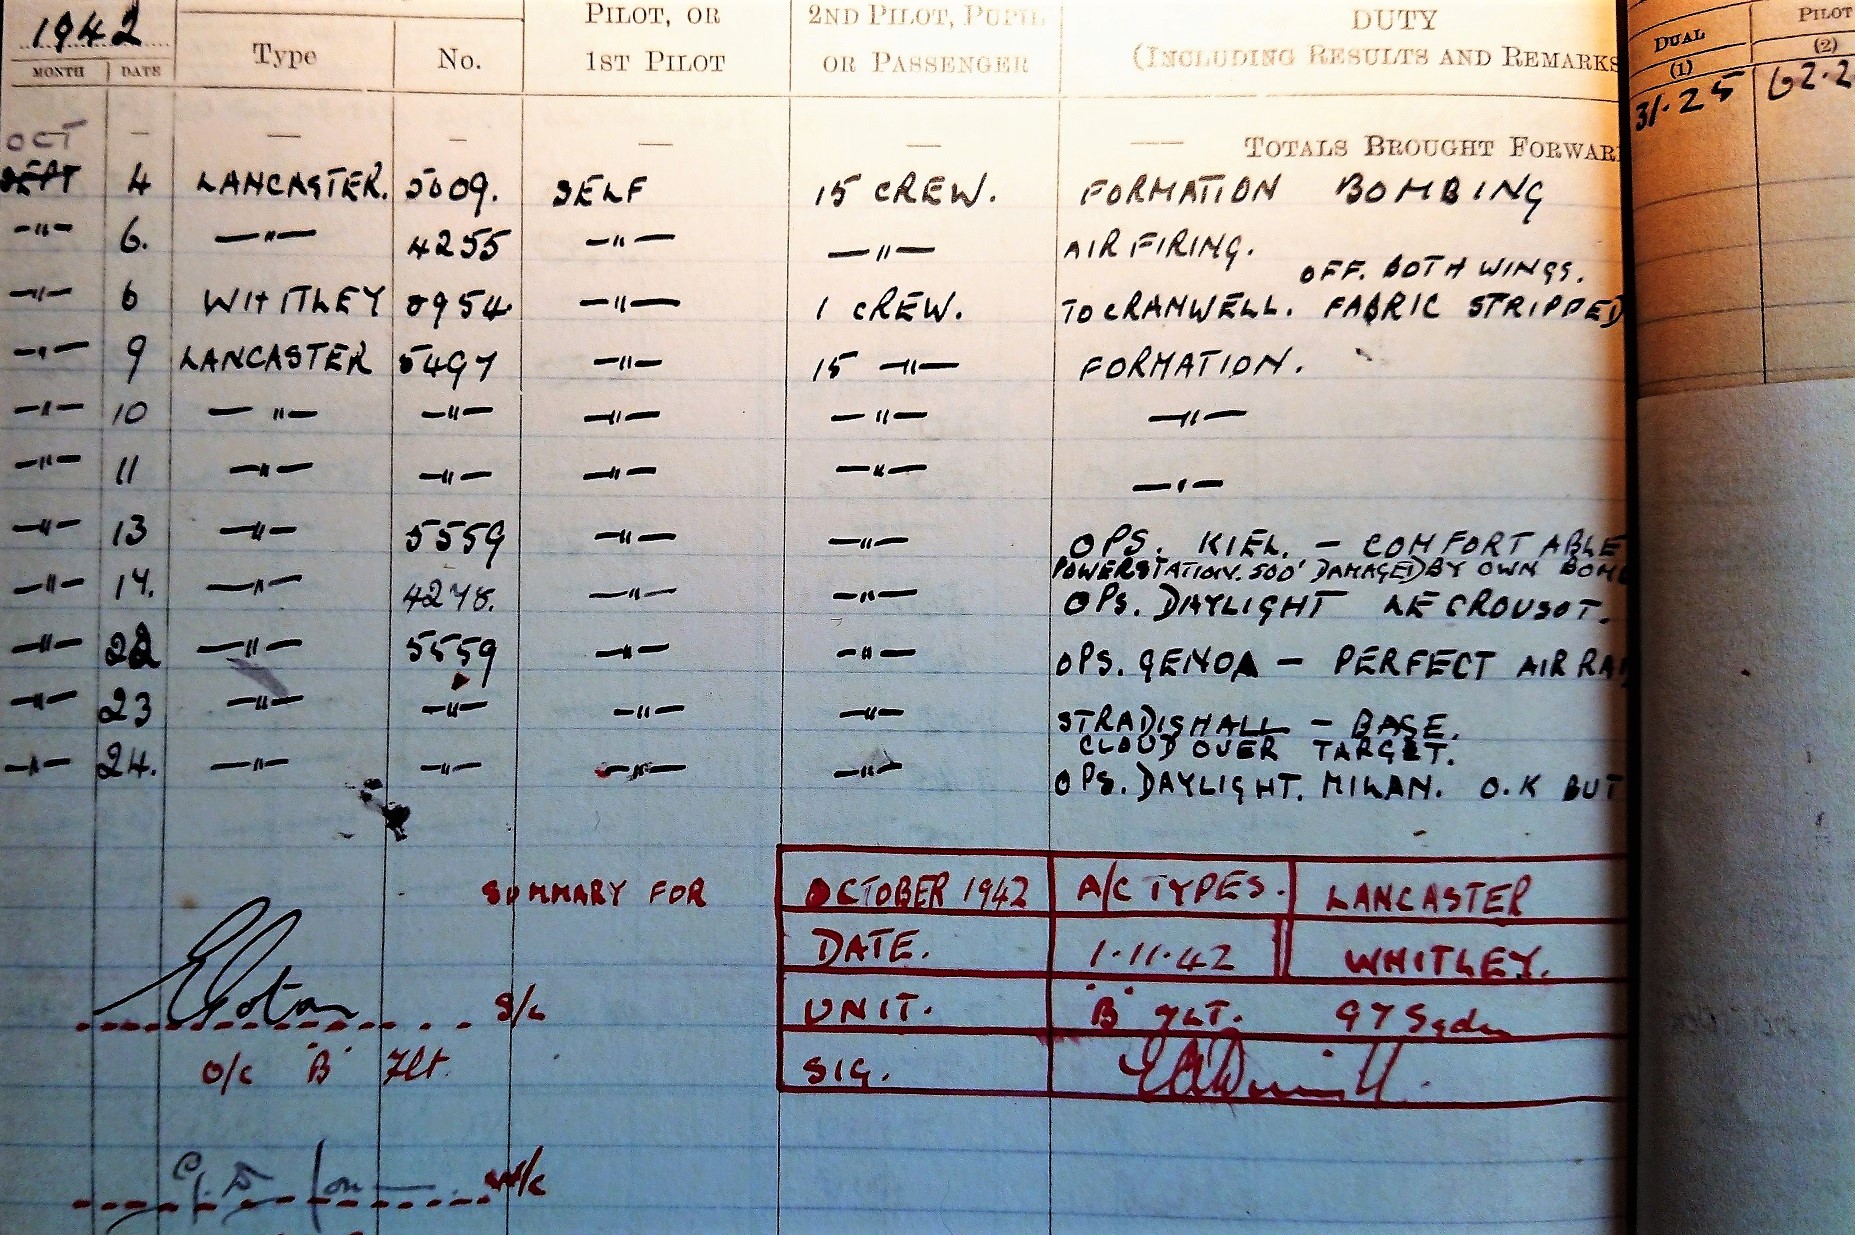 1942 Type No. PILOT, OR 1ST PILOT 2ND PILOT, PUPIL OR PASSENGER DUTY (INCLUDING RESULTS AND REMARKS
MONTH DATE
DUAL (1) PILOT (2)
31.25 62.2
OCT — — — — — — TOTALS BROUGHT FORWAR
SEPT 4 LANCASTER. 5609. SELF 15 CREW. FORMATION BOMBING
—"— 6. —"— 4255 —"— —"— AIR FIRING.
OFF. BOTH WINGS.
—"— 6 WHITLEY 0954 —"— 1 CREW. TO CRANWELL. FABRIC STRIPPED
—"— 9 LANCASTER 5497 —"— 15 —"— FORMATION.
—"— 10 —"— —"— —"— —"— —"—
—"— 11 —"— —"— —"— —"— —"—
—"— 13 —"— 5559 —"— —"— OPS. KIEL. — COMFORTABLE
POWERSTATION. 500' DAMAGED BY OWN BOMB
—"— 14. —"— 4278. —"— —"— OPS. DAYLIGHT LE CROUSOT.
—"— 22 —"— 5559 —"— —"— OPS. GENOA — PERFECT AIR RA
—"— 23 —"— —"— —"— —"— STRADISHALL — BASE.
CLOUD OVER TARGET.
—"— 24. —"— —"— —"— —"— OPS. DAYLIGHT. MILAN. O.K BUT
SUMMARY FOR OCTOBER 1942 A/C TYPES. LANCASTER
DATE. 1.11.42 WHITLEY.
UNIT. "B" FLT. 97 Sqdn
S/L
SIG.
O/C "B" Flt.
W/C